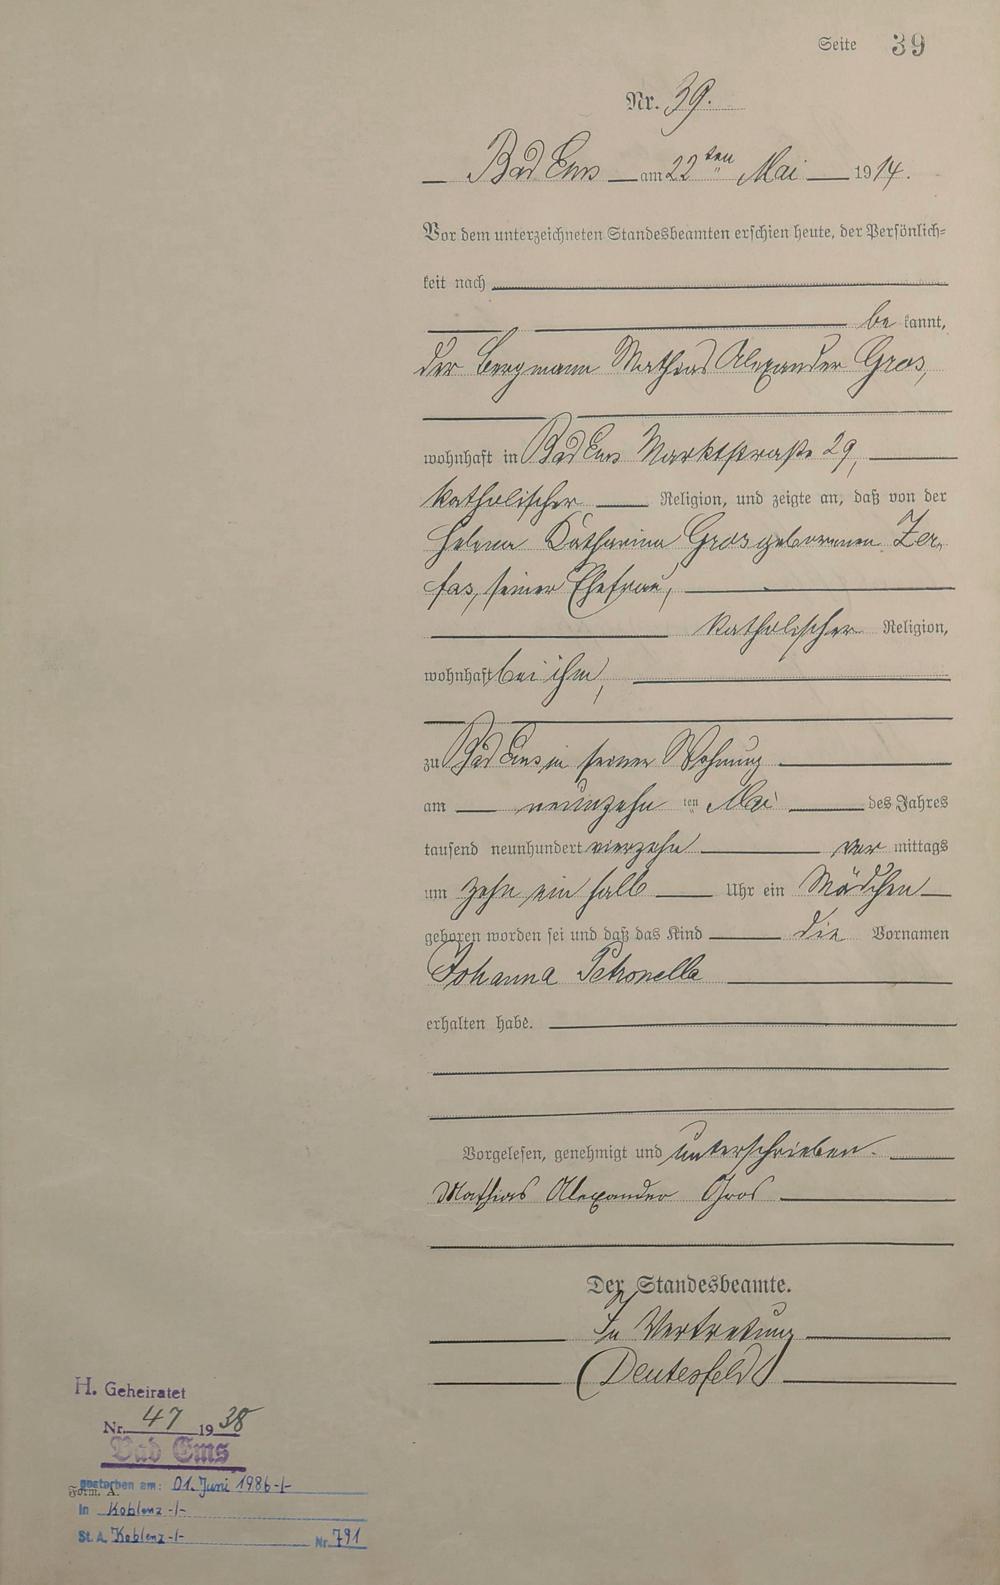 Seite 39
Nr. 39.
Bad Ems am 22ten Mai 1914.
Vor dem unterzeichneten Standesbeamten erschien heute, der Persönlich=
keit nach
be kannt,
der Bergmann Mathias Alexander Gros,
wohnhaft in Bad Ems Marktstraße 29,
katholischer Religion, und zeigte an, daß von der
Helena Katharina Gros geborenen Zer-
fas, seiner Ehefrau,
katholischer Religion,
wohnhaft bei ihm,
zu Bad Ems in seiner Wohnung
am neunzehn ten Mai des Jahres
tausend neunhundert vierzehn vor mittags
um zehn ein halb Uhr ein Mädchen
geboren worden sei und daß das Kind die Vornamen
Johanna Petronella
erhalten habe.
Vorgelesen, genehmigt und unterschrieben.
Mathias Alexander Gros
Der Standesbeamte.
In Vertretung
Deutesfeld
H. Geheiratet
Nr. 47 1938
Bad Ems
gestorben am: 01. Juni 1986 -/-
Form. A.
in Koblenz -/-
St. A. Koblenz -/- Nr. 791